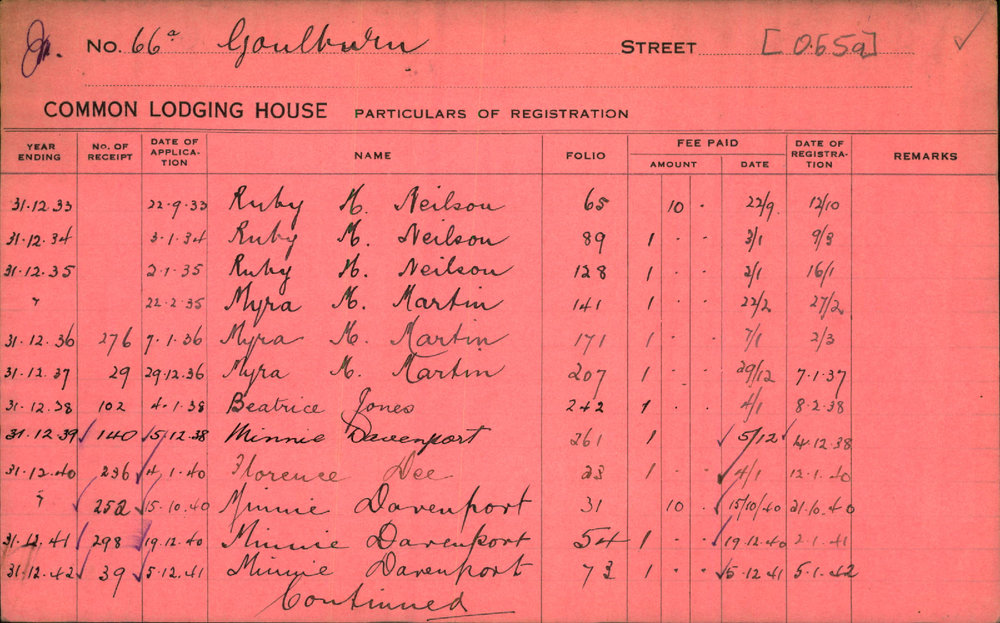 No. 66a Goulburn STREET [065a]
COMMON LODGING HOUSE PARTICULARS OF REGISTRATION
YEAR ENDING No. OF RECEIPT DATE OF APPLICA-TION NAME FOLIO FEE PAID AMOUNT DATE DATE OF REGISTRA-TION REMARKS
31.12.33 22.9.33 Ruby M. Neilson 65 10 . 22/9 12/10
31.12.34 3.1.34 Ruby M. Neilson 89 1 . . 3/1 9/3
31.12.35 2.1.35 Ruby M. Neilson 128 1 . . 2/1 16/1
" 22.2.35 Myra M. Martin 141 1 . . 22/2 27/2
31.12.36 276 7.1.36 Myra M. Martin 171 1 . . 7/1 2/3
31.12.37 29 29.12.36 Myra M. Martin 207 1 . . 29/12 7.1.37
31.12.38 102 4.1.38 Beatrice Jones 242 1 . . 4/1 8.2.38
31.12.39 140 5.12.38 Minnie Davenport 261 1 5/12 12.38
31.12.40 236 4.1.40 Florence Dee 23 1 . . 4/1 12.1.40
" 252 15.10.40 Minnie Davenport 31 10 . 15/10/40 21.10.40
31.12.41 298 19.12.40 Minnie Davenport 54 1 . . 19.12.40 2.1.41
31.12.42 39 5.12.41 Minnie Davenport 73 1 . . 5.12.41 5.1.42
Continued